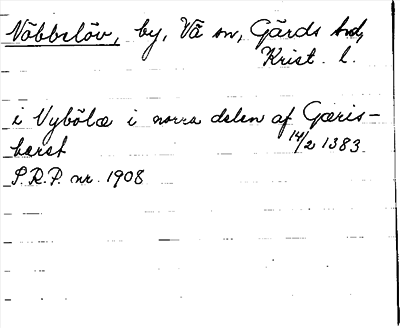 Nöbbelöv, by, Vä sn, Gärds hd,
Krist. l.
i Vybölæ i norra delen af Gæris-
hæret 14/2 1383
S.R.P. nr. 1908